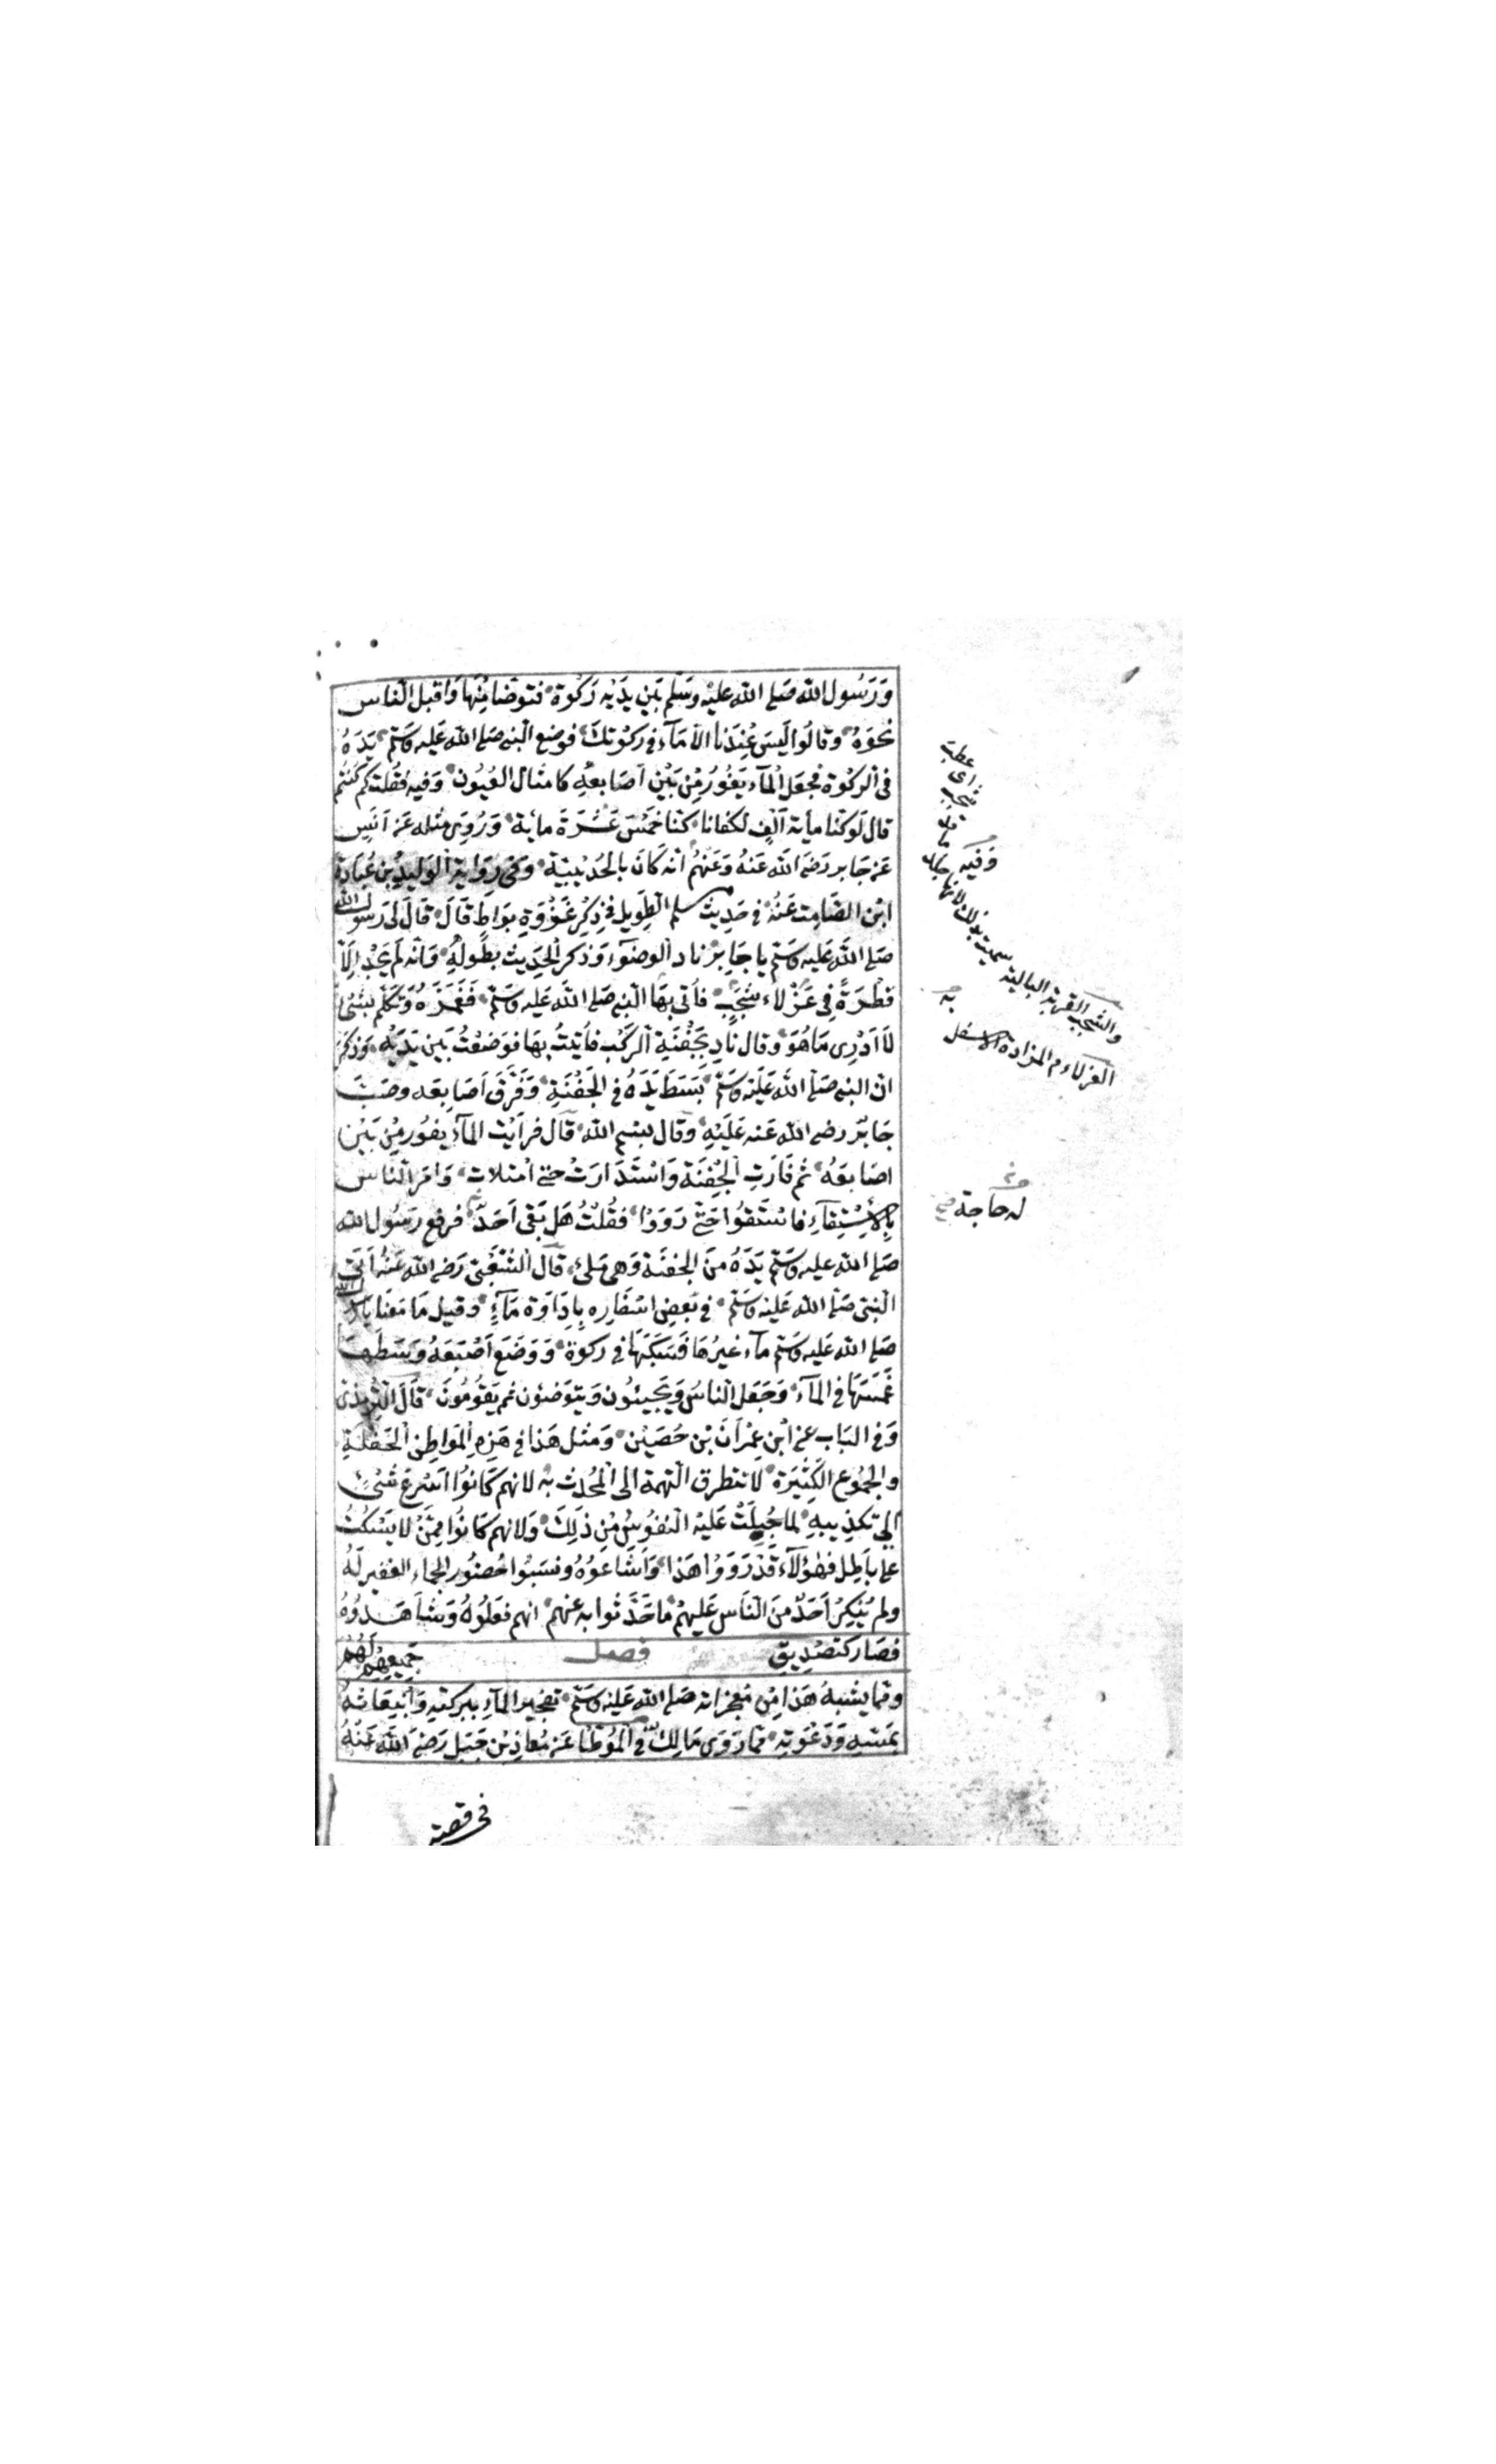 وَرَسُول الله صَلى الله عليْه وسَلّم بَيْن يَدَيْه رَكْوَة فتوضّا مِنْهَا وَاقبل الناس
نحْوَهُ وقالُوا لَيسَ عِنْدنا الا مَاء في رَكْوتكَ فوضع النبى صَلى الله عَليه وسَلّم يَدَهُ
فى الركْوَة فجعَل الْمآء يَفُورُ مِنْ بَيْن اَصَابعِهِ كامثال العُيُون وَفيه فقُلت كم كنتُم
قال لَوكنا مأية اَلفٍ لكفانا كنا خَمْسَ عَشْرَةَ ماية وَرُوِى مثله عَن اَنس
عَن جَابر رَضى الله عَنهُ وَعَنهُم انه كَانَ بالحُدَيْبية وَفى رِوَاية الوَليد بن عُبَادة
ابْن الصَّامِت عَنْهُ فى حَدِيث مسلم الطِويل فى ذِكْر غَزْوَةِ بوَاطٍ قَالَ قَالَ لى رَسُول الله
صَلى الله عَليه وسَلّم يا جَابِرُ ناد الوضوَء وَذكر الحَدِيث بطُولِهِ وَانه لَم يَجِدْ اِلاّ
قطْرَةً فِى عَزْلاء شَجْبٍ فاُتى بهَا النبى صَلى الله عَليه وسَلّم فَغَمَزَهُ وَتكَلّم بشىء
لَا اَدْرِى مَا هُوَ وقال نَادِ بجَفْنَةِ الرَكْب فأتيتُ بهَا فوَضعْتُ بَين يَدَيْه وَذكَرَ
انّ النبى صَلى الله عَليْه وَسَلّم بَسَطَ يَدَهُ فى الجَفْنَةِ وَفَرَّق اَصَابعَه وصَبَّ
جَابرٌ رضى الله عَنه عَلَيْهِ وقال بسم الله قَال فرَاَيْت المآء يفُورُ مِنْ بَيْن
اصَابعَهُ ثُم فَارَتِ الجْفنَة وَاسْتَدَارَتْ حتى امْتلات وَامَرَ الناس
بالاسْتِقآءِ فاسْتَقَوْا حَتّى رَوَوْا فقُلْتُ هَل بَقى اَحَدٌ فرفع رَسُول الله
صَلى الله عليه وسَلّم يَدَهُ مِنَ الجفنَة وَهى مَلىء قال الشعْبِى رَضى الله عَنْهُ اُتى
النبى صَلى الله عَليْه وسَلّم فى بَعضِ اسْفَارِه بِاِدَاوَة مَآءٍ وقيل مَا مَعَنا يَا رَسُول الله
صَلى الله عَليه وسَلّم مآء غيرُهَا فَسَكَبَهَا فى ركوَة وَوَضَعَ اَصْبَعَهُ وَسَطَهَا
غَمَسَهَا فى المآء وَجَعَل الناسُ وَيجيئُون وَيتوَضئون ثم يَقُومُونَ قَالَ الترمذى
وَفى البَاب عَن ابْن عِمْرَانَ بْن حُصَيْن وَمثل هَذا فى هَذِهِ المَوَاطِن الحَفْلَةِ
والجمُوع الكَثِيْرَة لا تتطرق التهمة الى المُحدث به لانهم كَانُوا اَسْرَعَ شَىء
الى تكذيبهِ لما جُبِلَتْ عَليْه النفُوسُ مِن ذَلِكَ وَلانهم كَانُوا مِمّنْ لا يَسْكُتُ
على بَاطِل فهٰؤلآء قَدْ رَوَوْا هَذا وَاَشاعَوُهُ ونسَبُوا حُضُور الجماء الغفير لَهُ
ولم يُنْكِرْ اَحَدٌ مِنَ النَاس عَليهمْ مَا حَدَّثوا به عَنهم انهم فعَلُوهُ وَشاهَدُوهُ
فصَار كتصْدِيق جَميعهم لَهُمْ
فصل
ومما يشْبهُ هَذا مِن مُعجزاته صَلى الله عَليْه وسَلّم تفجير المآءِ ببركتِهِ وَانبعَاثهُ
بمَسّهِ وَدَعْوَتِه مما رَوَى مَالِكٌ فى المُوَطّا عَن مُعَاذِ بْن جَبَل رَضى الله عَنْهُ
فى قصة
وَفيه
والشجب القربة البالية سميت بذلك لانها
شجب اى عطب
به
العزلاء فم المزادة الاسفل
له حاجة صح